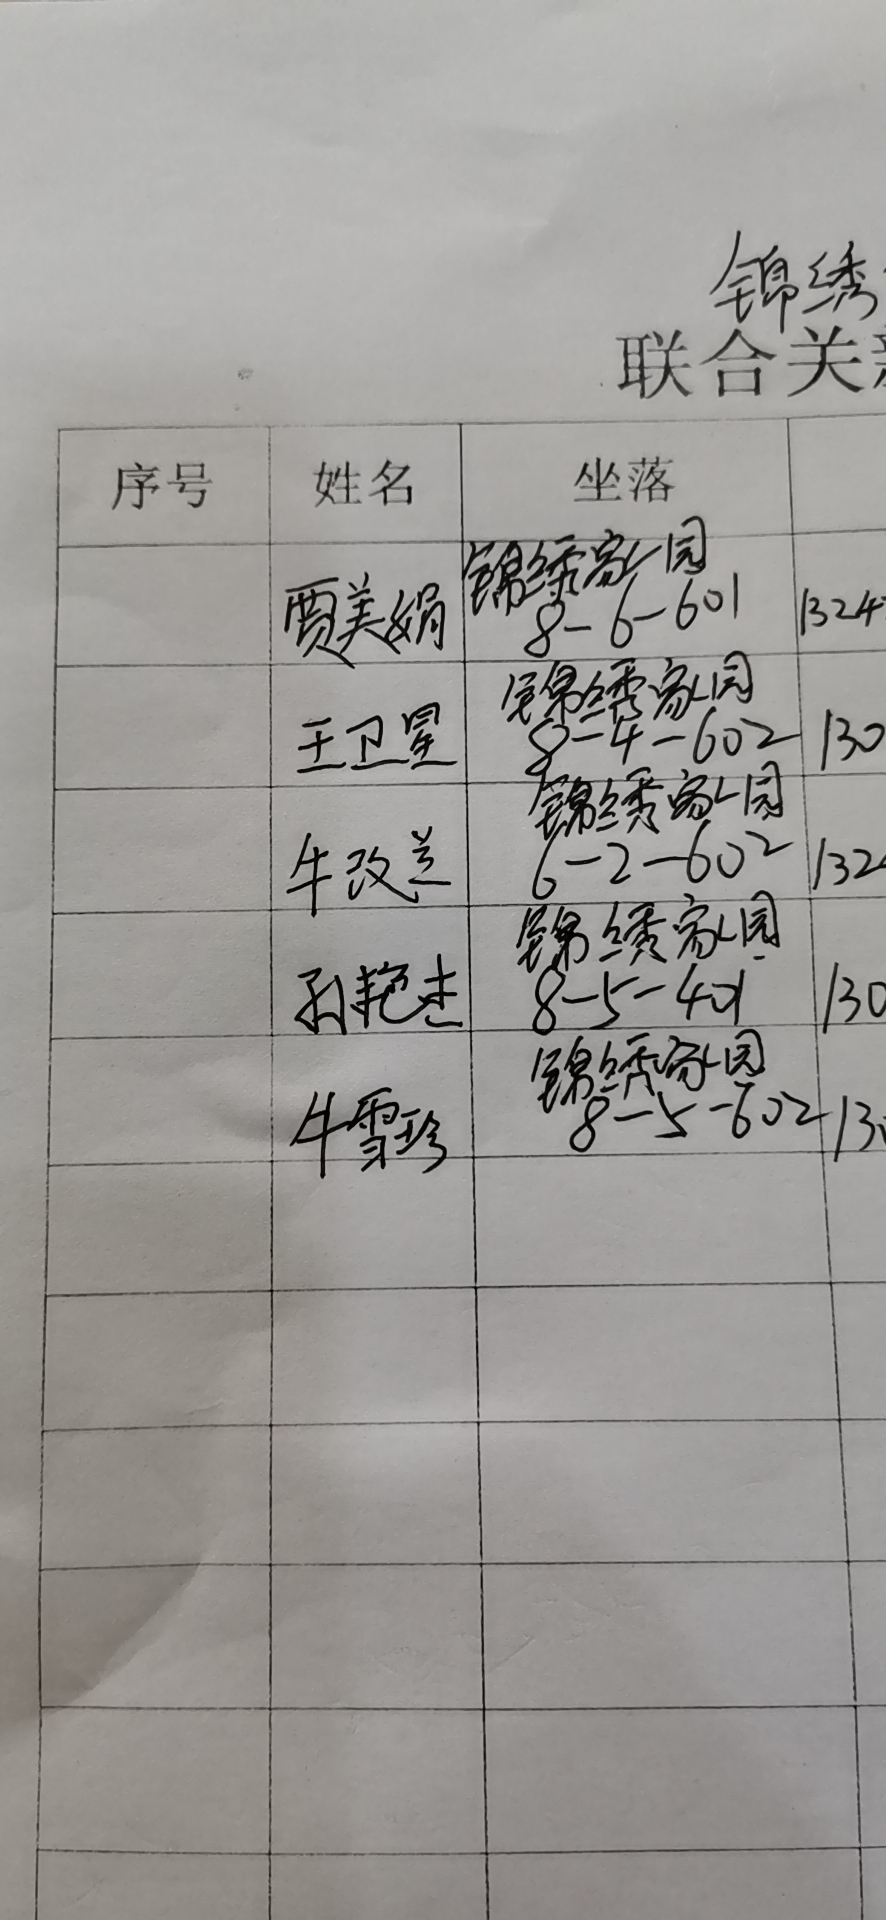 锦绣
联合关
序号 姓名 坐落
锦绣家园
贾美娟 8-6-601 1324
锦绣家园
王卫星 8-4-602 130
锦绣家园
牛改兰 6-2-602 132
锦绣家园
孙艳杰 8-5-401 130
锦绣家园
牛雪珍 8-5-602 130